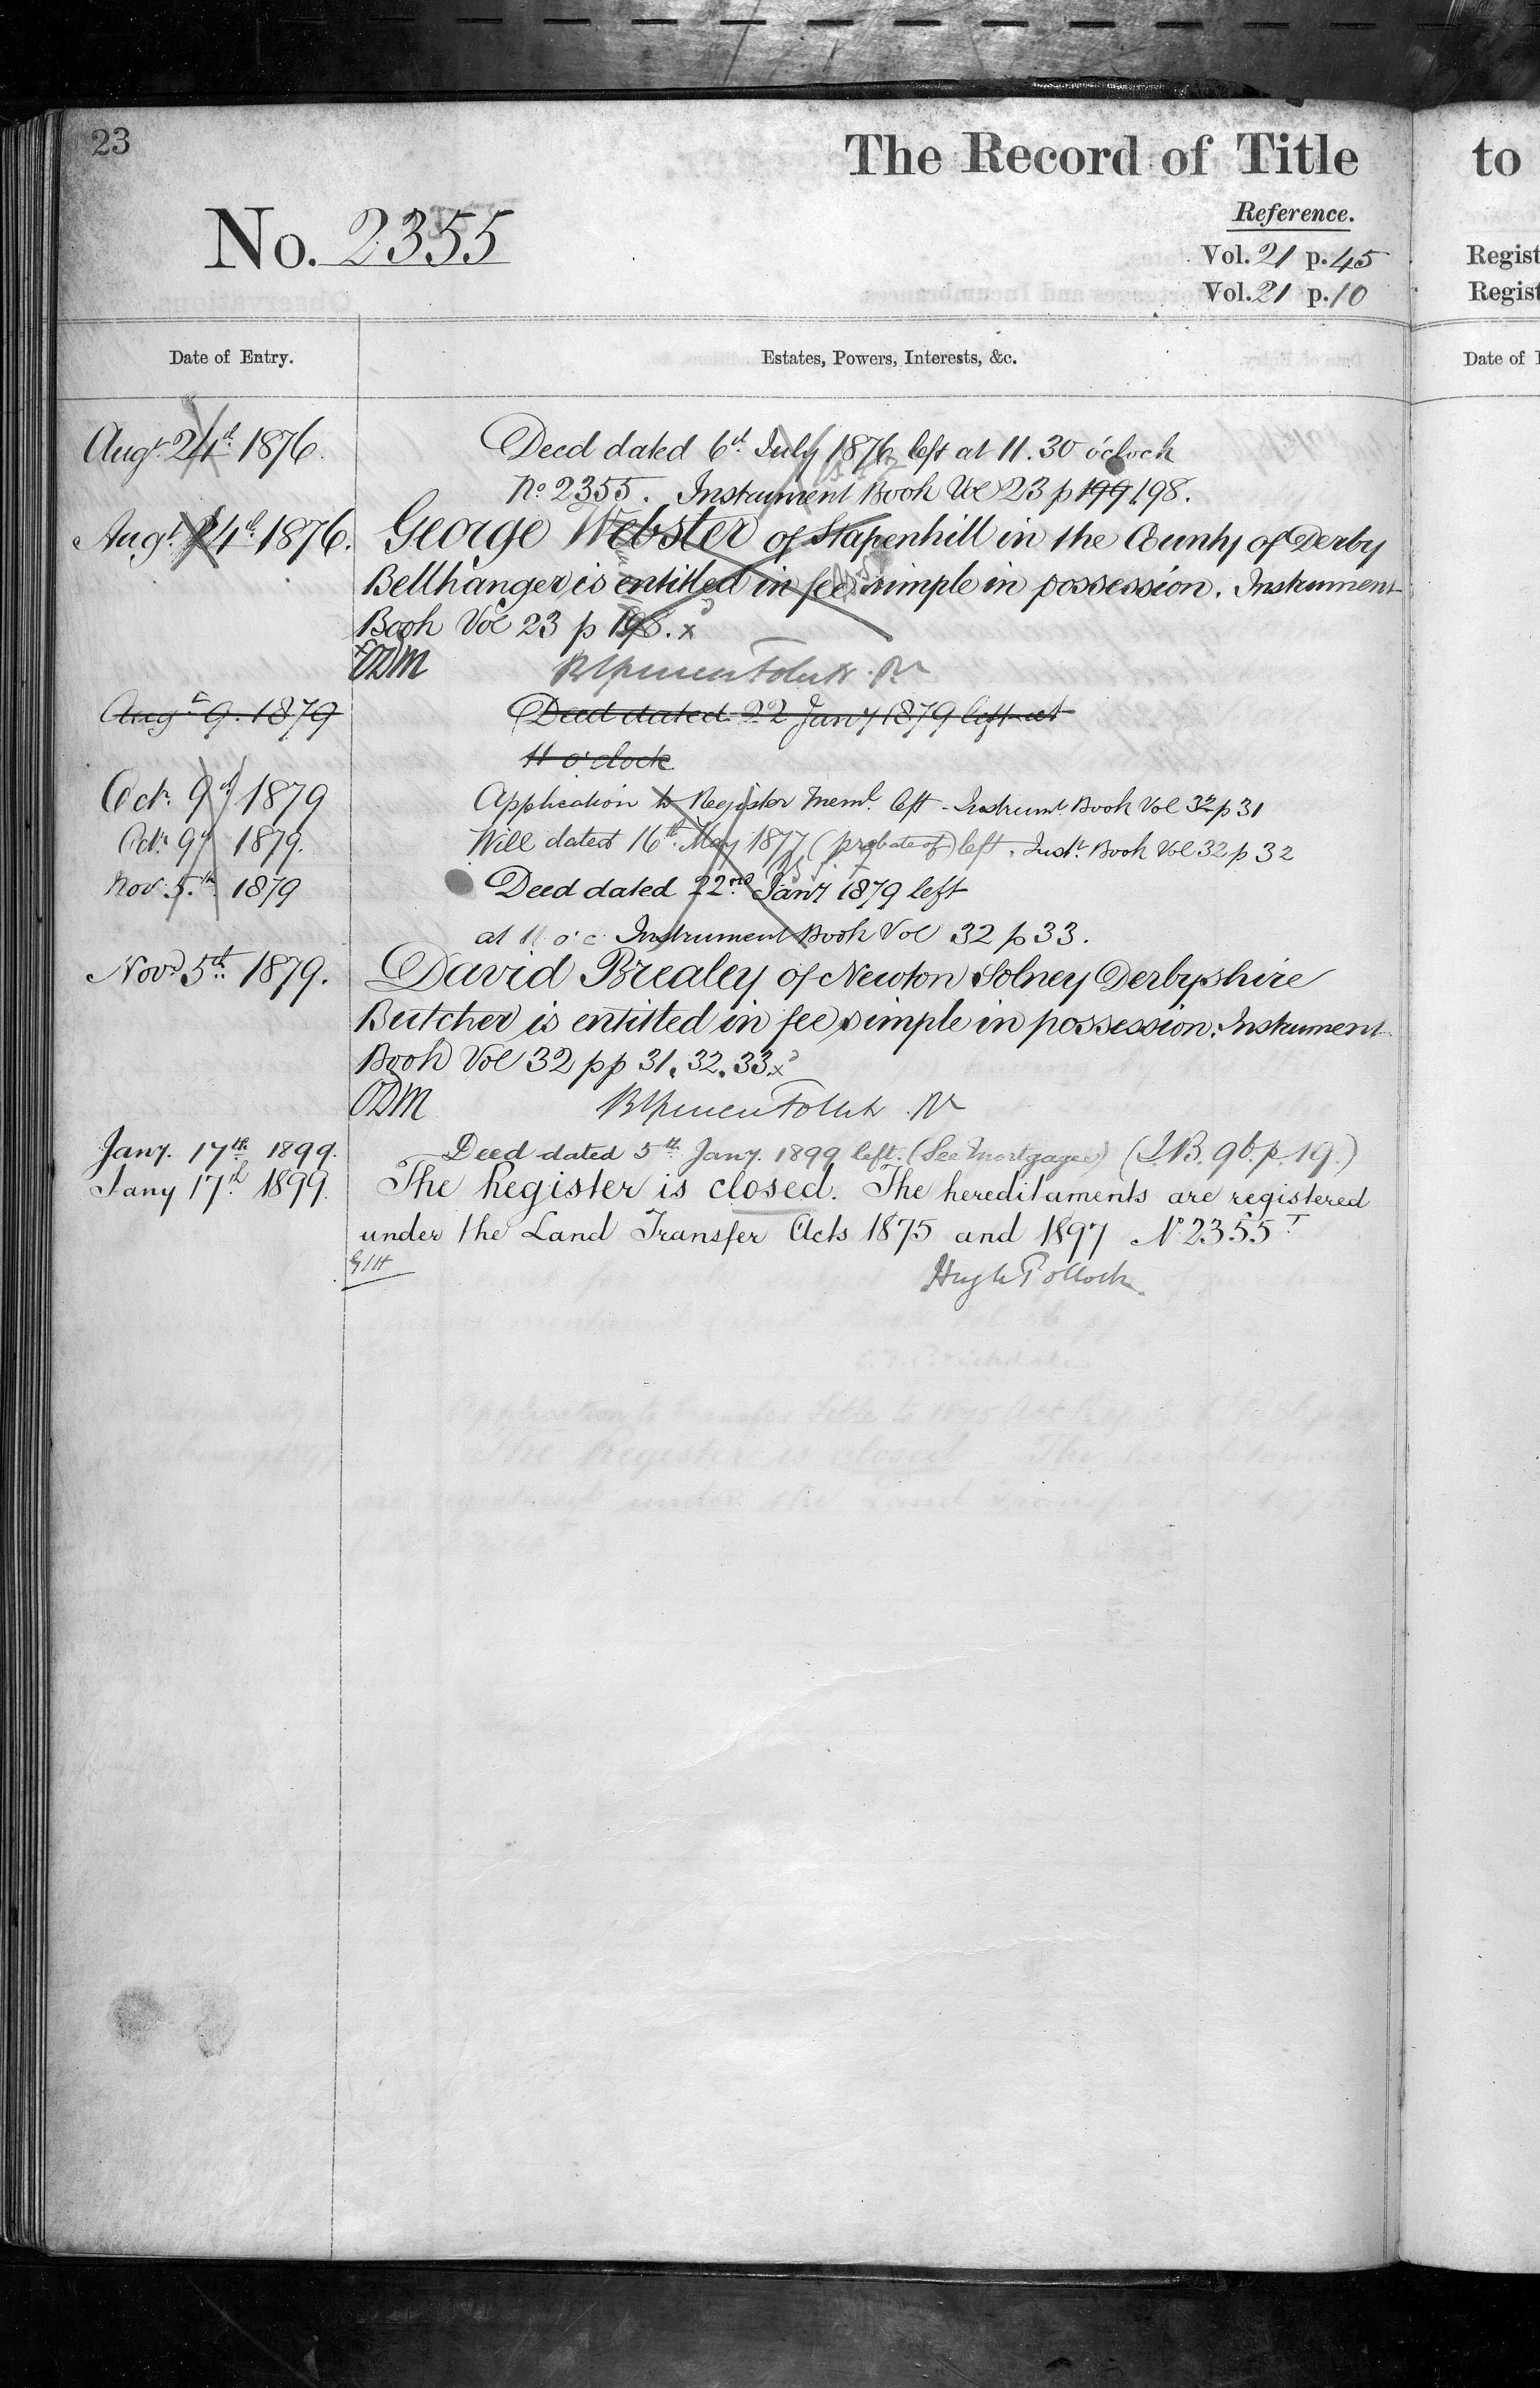 23
The Record of Title
to
Reference.
No. 2355
Vol. 21 p. 45
Regist
Vol. 21 p. 10
Regist
Date of Entry.
Estates, Powers, Interests, &c.
Date of
Augt 24th 1876.
Deed dated 6th July 1876 left at 11.30 o'clock
No 2355. Instrument Book Vol 23 p 199 198.
Augt 24th 1876.
George Webster of Stapenhill in the County of Derby
Bellhanger is entitled in fee simple in possession. Instrument
Book Vol 23 p 198. x
ODM
Augt 9. 1879
Deed dated 22 Jany 1879 left at
11 o'clock
Octr. 9th 1879
Application to Register Meml. left - Instrumt. Book Vol 32 p 31
Octr. 9th 1879.
Will dated 16th May 1877 (probate of) left. Instt. Book Vol 32 p 32
Nov 5th 1879
Deed dated 22nd Jany 1879 left
at 11 o'c Instrument Book Vol 32 p 33.
Novr 5th 1879.
David Brealey of Newton Solney Derbyshire
Butcher is entitled in fee simple in possession. Instrument
Book Vol 32 pp 31. 32. 33. x
ODM
Jany. 17th 1899.
Deed dated 5th Jany. 1899 left. (See Mortgages) (I.B. 96. p. 19.)
Jany 17th 1899.
The Register is closed. The hereditaments are registered
under the Land Transfer Acts 1875 and 1897 No 2355 T
Hugh Pollock